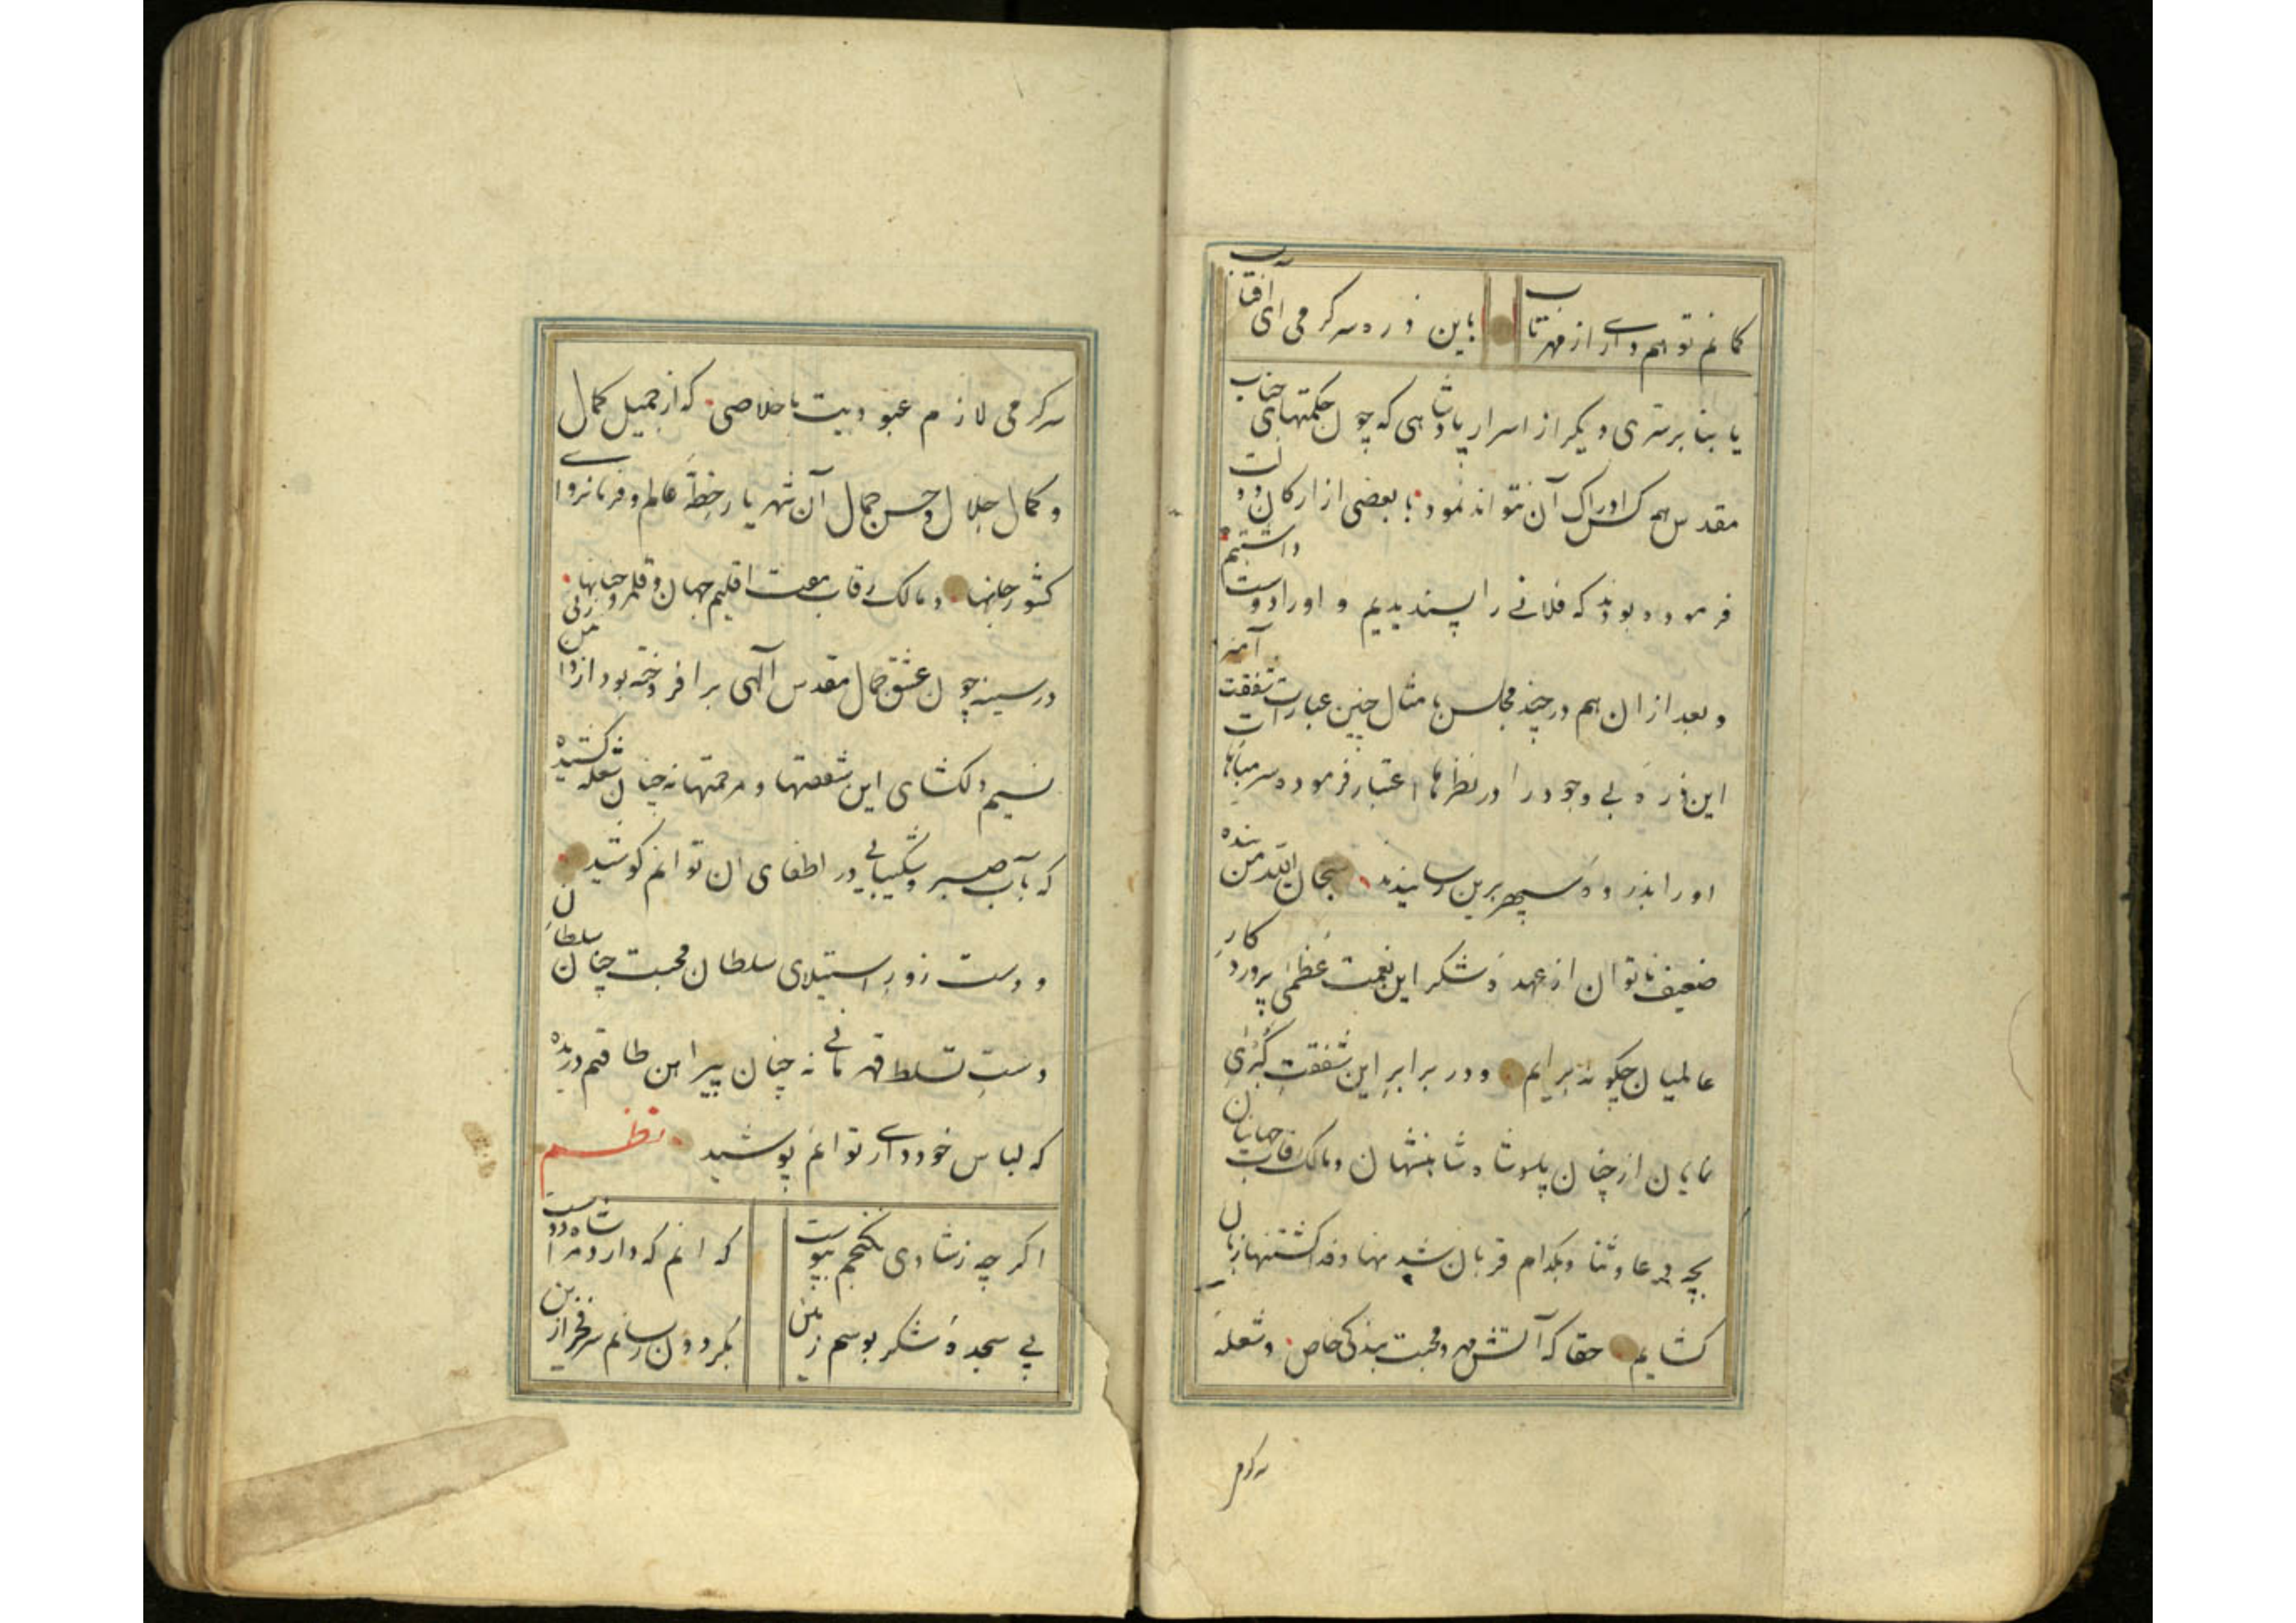 کمانم تو هم داری از مهر تاب
باین ذره سرگرمی ای آفتاب
یا بنا بر سری دیگر از اسرار پادشاهی که چون حکمتهای جناب
مقدس همه کس ادراک آن نتواند نمود با بعضی از ارکان دولت
فرموده بودند که فلانی را پسندیدیم و او را دوست داشتیم
و بعد از ان هم در چند مجلس بامثال چنین عبارات شفقت آمیز
این ذرهٔ بی وجود را در نظرها اعتبار فرموده سر مباهات
او را بذروهٔ سپهر برین رسانیدند سبحان الله من بندهٔ
ضعیف ناتوان از عهدهٔ شکر این نعمت عظمی پروردگار
عالمیان چگونه برایم و در برابر این شفقت کبرای
نمایان از چنان پادشاه شاهنشهان و مالک رقاب جهانیان
بچه دعا و ثنا و بکدام قربان شدنها و فدا گشتنها زبان
گشایم حقا که آتش مهر و محبت بندگی خاص و شعلهٔ
سرگرم
سرگرمی لازم عبودیت باخلاصی که از جمیل کمال
و کمال جلال و حسن جمال آن شهریار خطهٔ عالم و فرمانروای
کشور جانها و مالک رقاب هفت اقلیم جهان و قلمرو جنانها
در سینه چون عشق جمال مقدس آلهی برافروخته بود از دامن زنی
نسیم دلکشای این شفقتها و مرحمتها نه چنان شعله کشیده
که بآب صبر و شکیبایی در اطفای ان توانم کوشید
و دست زور استیلای سلطان محبت چنان سلطان
دست تسلط قهرمانی نه چنان پیراهن طاقتم دریده
که لباس خودداری توانم پوشید نظم
اگر چه ز شادی نگنجم بپوست
که انم که دارد مرا شاه دوست
پی سجدهٔ شکر بوسم زمین
بگردون رسانم سر فخر ازین